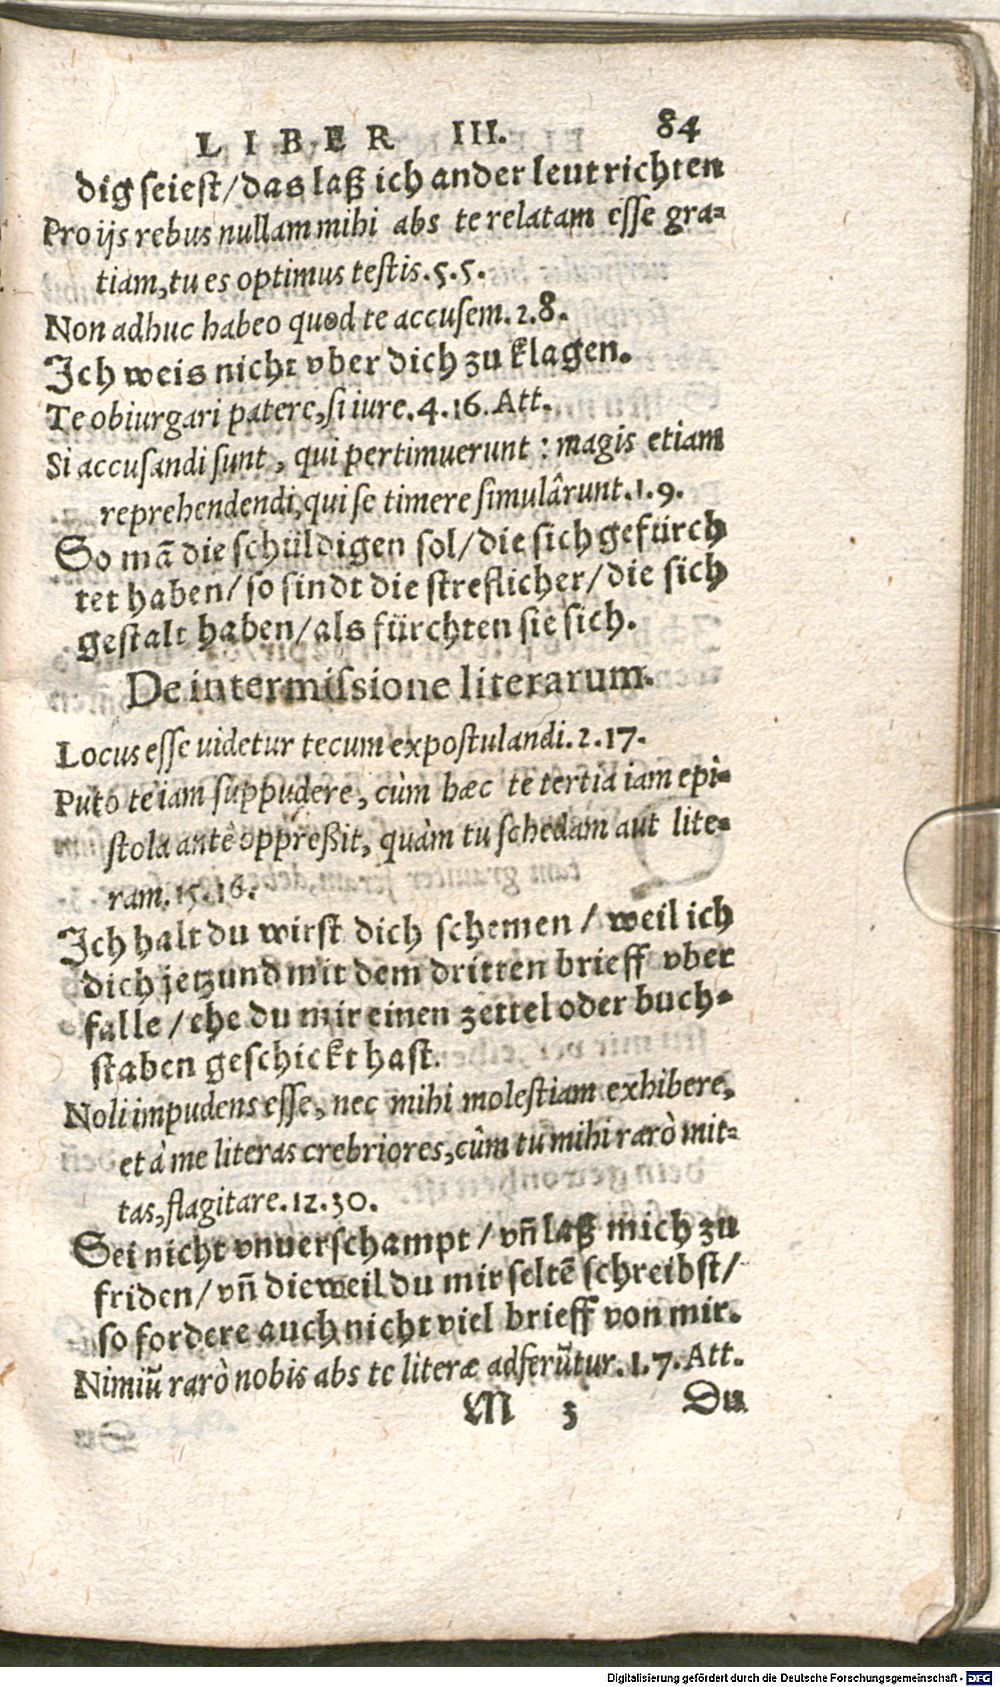 LIBER III. 84
dig seiest/das laß ich ander leut richten
Pro ijs rebus nullam mihi abs te relatam esse gra-
tiam, tu es optimus testis.5.5.
Non adhuc habeo quod te accusem.2.8.
Ich weis nicht vber dich zu klagen.
Te obiurgari patere, si iure.4.16.Att.
Si accusandi sunt, qui pertimuerunt: magis etiam
reprehendendi, qui se timere simulârunt.1.9.
So mā die schüldigen sol/die sich gefürch
tet haben/so sindt die streflicher/die sich
gestalt haben/als fürchten sie sich.
De intermissione literarum.
Locus esse uidetur tecum expostulandi.2.17.
Puto te iam suppudere, cùm hæc te tertia iam epi-
stola antè oppreßit, quàm tu schedam aut lite-
ram.15.16.
Ich halt du wirst dich schemen/weil ich
dich jetzund mit dem dritten brieff vber
falle/ehe du mir einen zettel oder buch-
staben geschickt hast.
Noli impudens esse, nec mihi molestiam exhibere,
et à me literas crebriores, cùm tu mihi rarò mit-
tas, flagitare.12.30.
Sei nicht vnuerschampt/vñ laß mich zu
friden/vñ dieweil du mir seltē schreibst/
so fordere auch nicht viel brieff von mir.
Nimiū rarò nobis abs te literæ adferūtur.1.7.Att.
M 3 Du
Digitalisierung gefördert durch die Deutsche Forschungsgemeinschaft - DFG